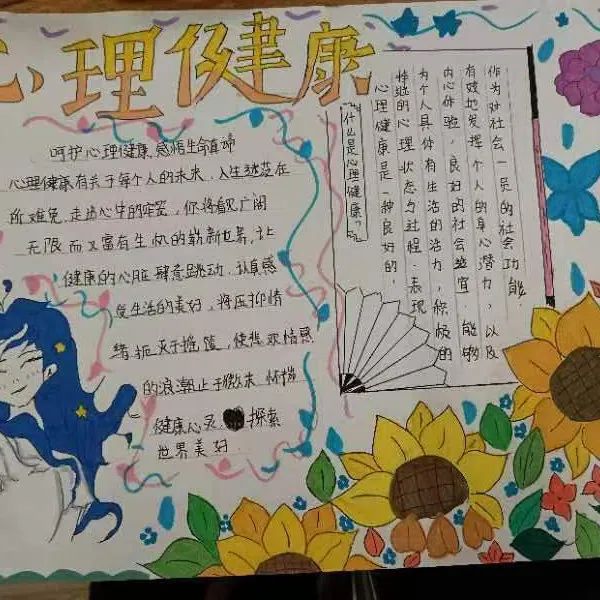 心理健康
呵护心理健康感悟生命真谛
心理健康有关于每个人的未来.人生迷茫在
所难免.走出心中的牢笼,你将看见广阔
无限而又富有生机的崭新世界,让
健康的心脏肆意跳动.认真感
受生活的美好,将压抑情
绪扼灭于摇篮,使悲哀情感
的浪潮止于微末.怀揣
健康心灵 探索
世界美好.
"什么是心理健康?"
心理健康是一种良好的,
的心理状态与过程.表现
为个人具体有生活的活力,积极的
内心体验,良好的社会适宜 能够
有效地发挥个人的身心潜力,以及
作为对社会一员的社会功能.